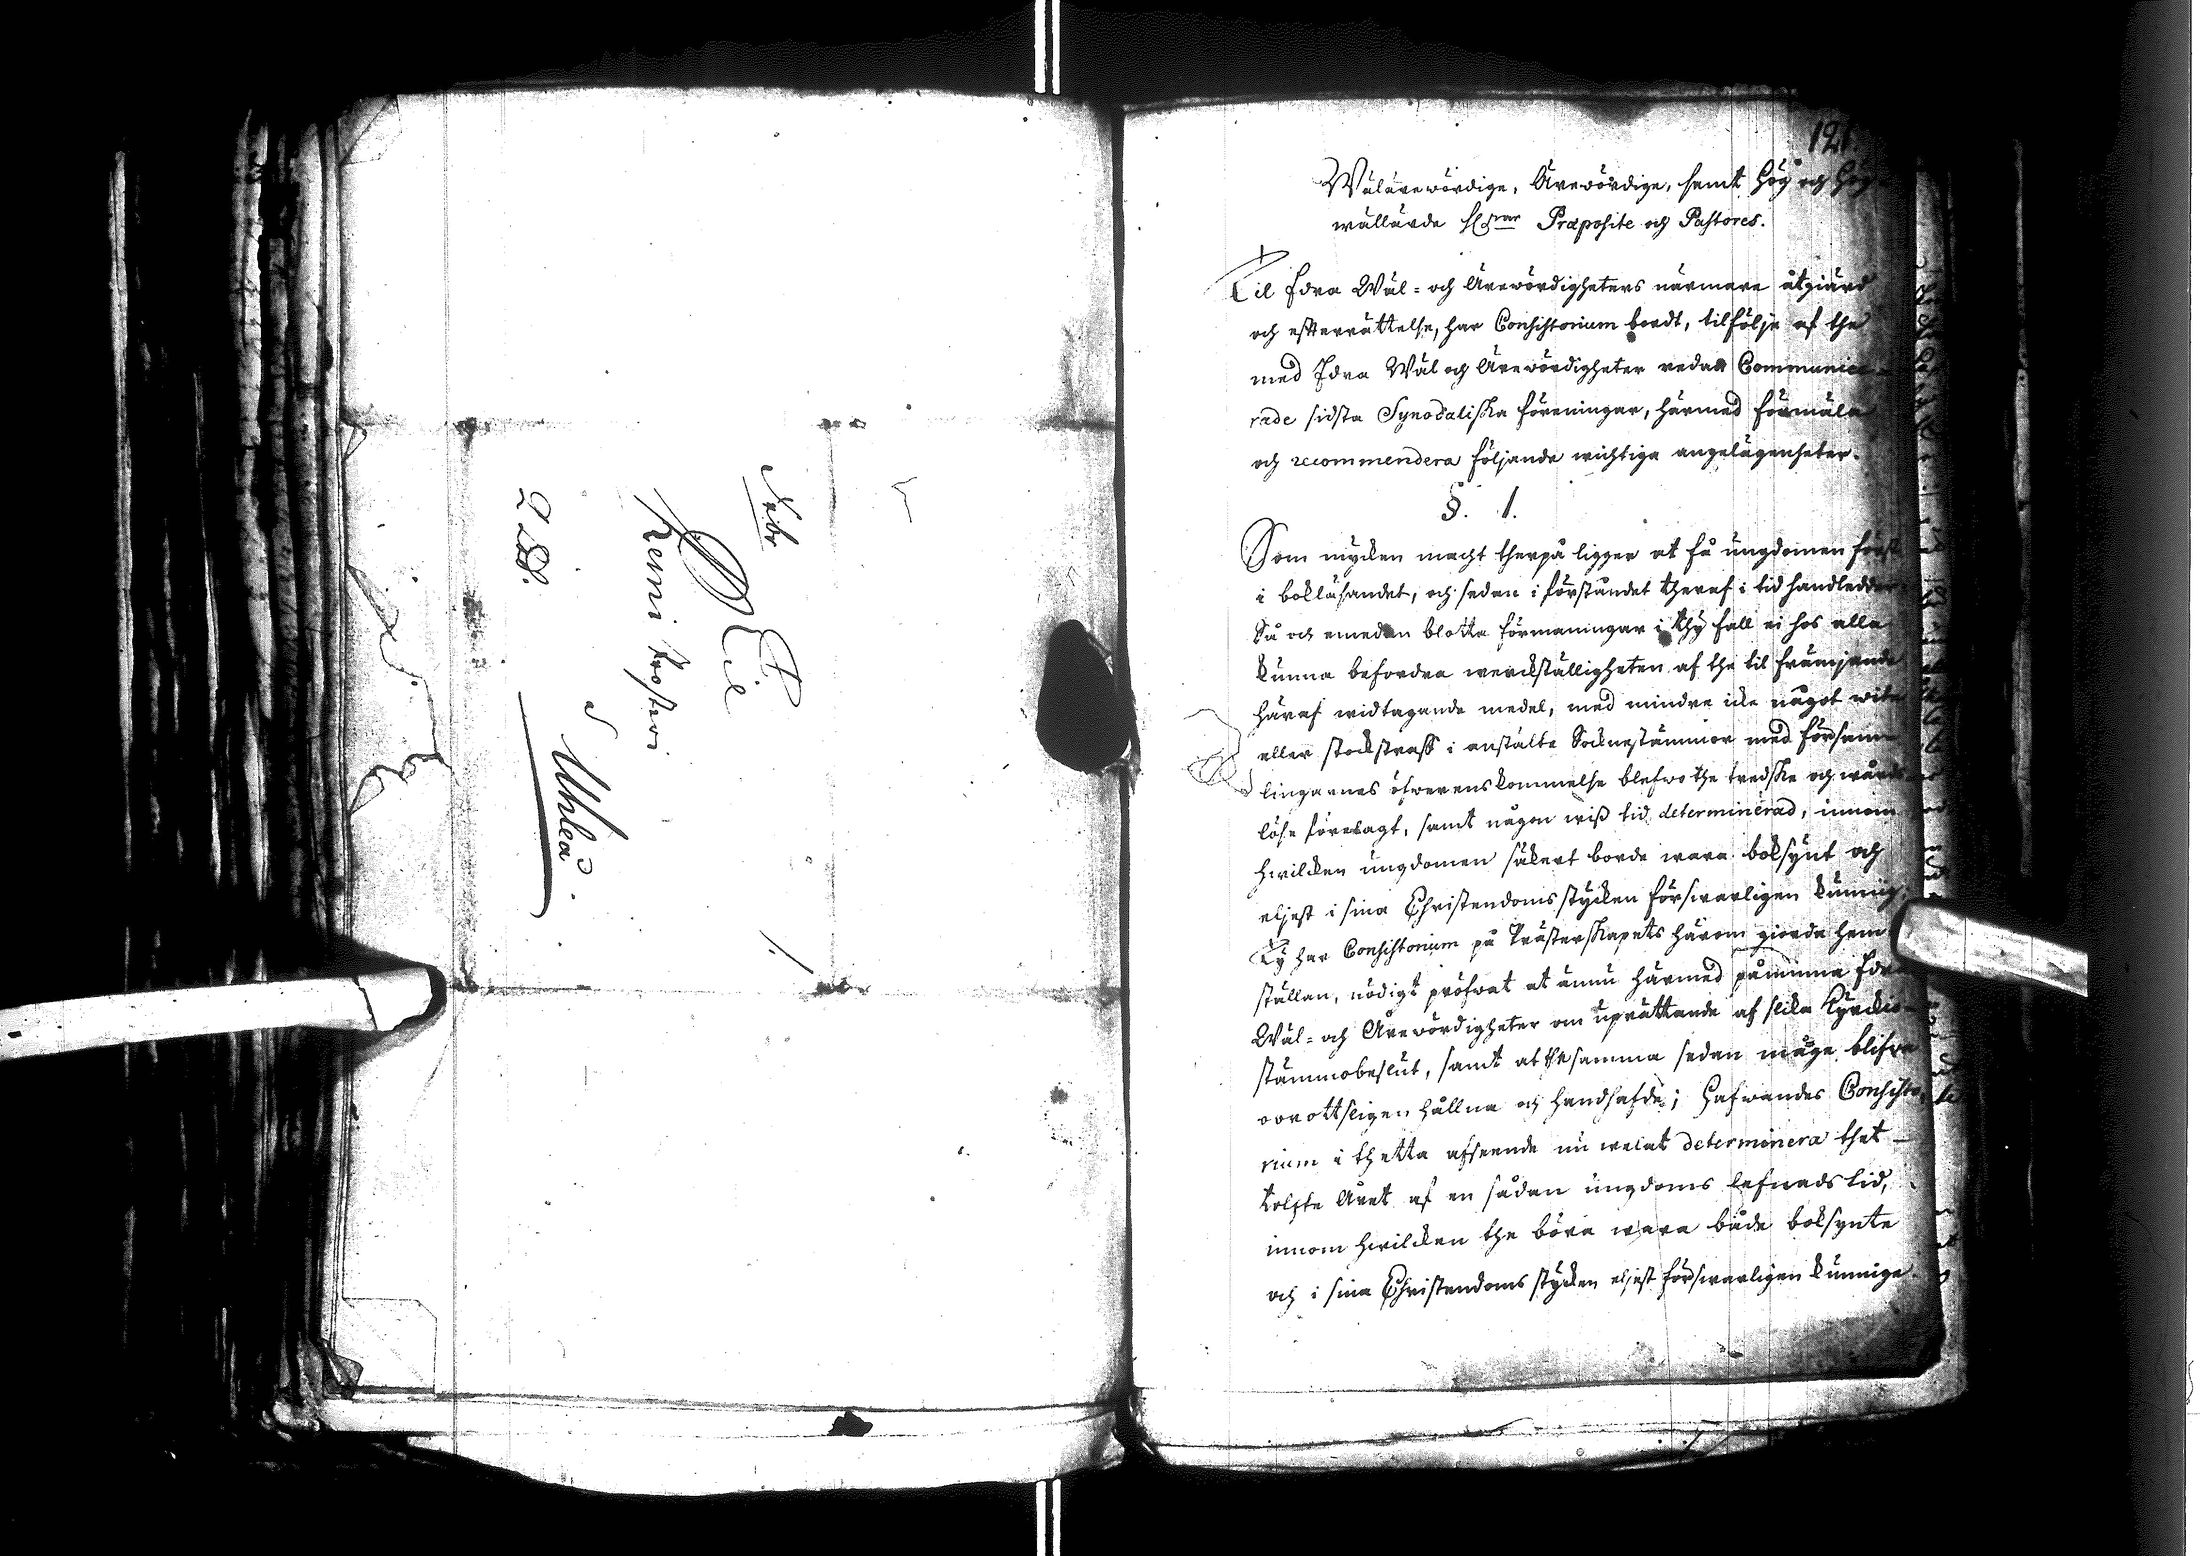 Sebr
Til
Kemi Prosteri
J Uhleå.
121.
Wälärewördige, Ärewördige, samt Hög och
wällärde H:rar Præposite och Pastores.
Til Edra Wäl- och Ärewördigheters närmare åtgiärd
och efterrättelse, har Consistorium bordt, tilfölje af the
med Edra Wäl och Ärewördigheter redan Communice-
rade sidsta Synodaliska föreningar, härmed förmäla
och recommendera följande wichtiga angelägenheter.
§. 1.
Som mycken macht therpå ligger at få ungdomen först
i bokläsandet, och sedan i förståndet theraf i tid handledder
Så och emedan blotta förmaningar i thy fall ei hos alla
kunna befordra werckställigheten af the til främjande
häraf widtagande medel, med mindre icke något wite
eller stockstraff i anstälte Socknestämmor med försam-
lingarnes öfwerenskommelse blefwo the tredske och wårds-
löse föresagt, samt någon wiss tid determinerad, innom
hwilcken ungdomen säkert borde wara boksynt och
eljest i sina Christendoms stycken förswarligen kunnig;
Ty har Consistorium på Prästerskapets härom giorde hem-
ställan, nödigt pröfwat at ännu härmed påminna Edra
Wäl- och Ärewördigheter om uprättande af slika Kyrckio-
stämmobeslut, samt at the samma sedan måge blifwa
orottsligen hållna och handhafde; Hafwandes Consisto-
rium i thetta afseende nu welat determinera thet
tolfte Året af en sådan ungdoms lefnads tid,
innom hwilcken the böra wara både boksynte
och i sina Christendoms stycken eljest förswarligen kunnige.